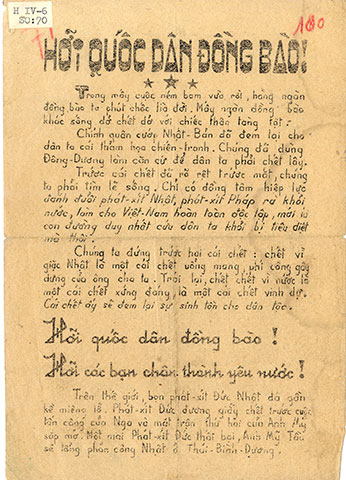 H IV-6
SO:70
180
HỠI QUỐC DÂN ĐỒNG BÀO!
Trong mấy cuộc ném bom vừa rồi, hàng ngàn
đồng bào ta phút chốc lìa đời. Mấy ngàn đồng bào
khác sống dở chết dở với chiếc thân tàng tật:
Chính quân cướp Nhật-Bản đã đem lại cho
dân ta cái thảm họa chiến-tranh. Chúng đã dùng
Đông-Dương làm căn cứ để dân ta phải chết lây.
Trước cái chết đã rõ rệt trước mắt, chúng
ta phải tìm lẽ sống. Chỉ có đồng tâm hiệp lực
đánh đuổi phát-xít Nhật, phát-xít Pháp ra khỏi
nước, làm cho Việt-Nam hoàn toàn độc lập, mới là
con đường duy nhất cứu dân ta khỏi bị tiêu diệt
mà thôi.
Chúng ta đứng trước hai cái chết: chết vì
giặc Nhật là một cái chết uổng mạng, phí công gây
dựng của ông cha ta. Trái lại, chết vì nước là
một cái chết xứng đáng, là một cái chết vinh dự.
Cái chết ấy sẽ đem lại sự sinh tồn cho dân tộc.
Hỡi quốc dân đồng bào!
Hỡi các bạn chân thành yêu nước!
Trên thế giới, bọn phát-xít Đức Nhật đã gần
kề miệng lỗ. Phát-xít Đức đương giẫy chết trước cuộc
tấn công của Nga và mặt trận thứ hai của Anh Mỹ
sắp mở. Một mai Phát-xít Đức thất bại, Anh Mỹ Tầu
sẽ tổng phản công Nhật ở Thái-Bình-Dương.